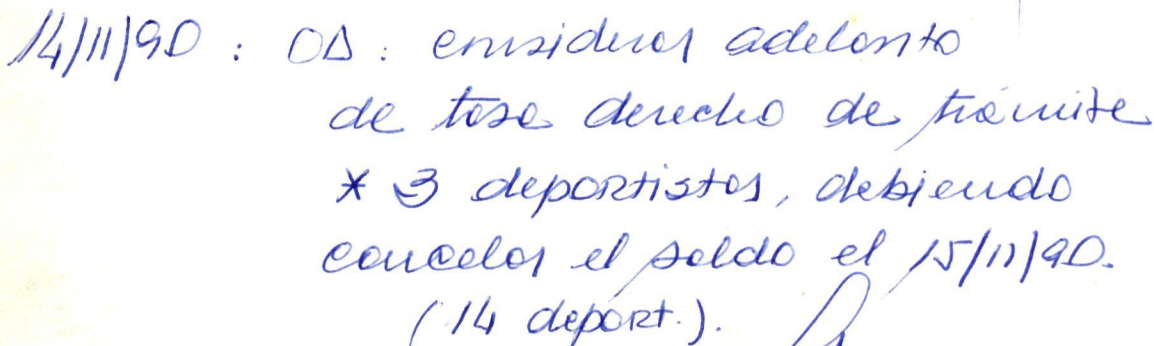 14/11/90 : OA : considerar adelanto
de tasa derecho de trámite
* 3 deportistas, debiendo
cancelar el saldo el 15/11/90.
(14 deport.).